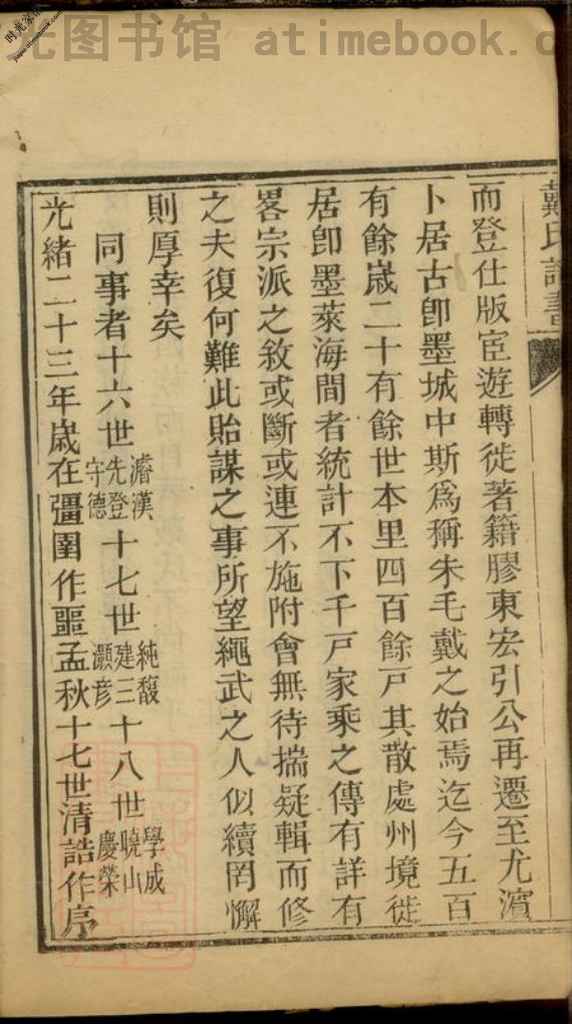 光图书馆 atimebook.c
戴氏譜書
而登仕版宦遊轉徙著籍膠東宏引公再遷至尤濱
卜居古卽墨城中斯爲稱朱毛戴之始焉迄今五百
有餘歲二十有餘世本里四百餘戸其散處州境徙
居卽墨萊海間者統計不下千戸家乘之傳有詳有
畧宗派之敘或斷或連不施附會無待揣疑輯而修
之夫復何難此貽謀之事所望繩武之人似續罔懈
則厚幸矣
同事者十六世濬漢先登守德十七世純馥建三灝彥十八世學成曉山慶榮
光緖二十三年歲在彊圉作噩孟秋十七世清誥作序